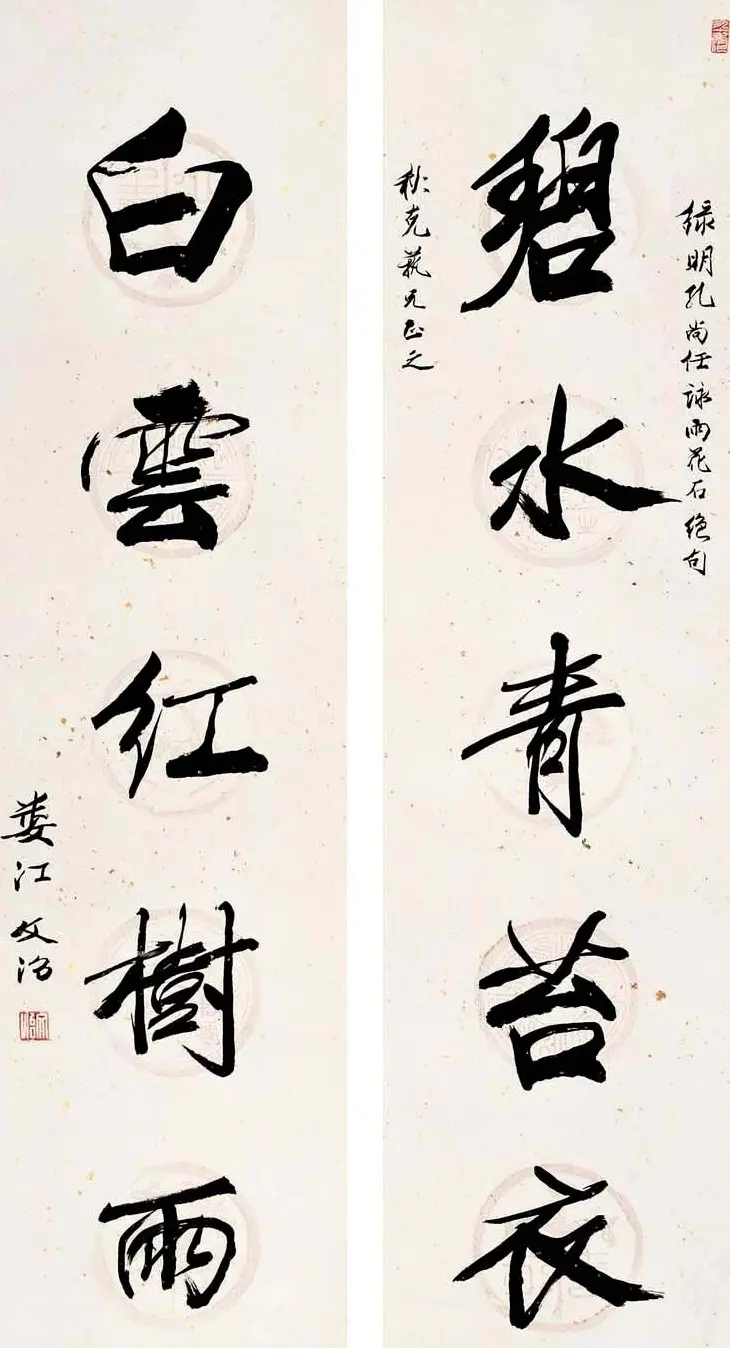 録明孔尚任詠雨花石絕句
碧水青苔衣
秋克藝兄正之
白雲紅樹雨
婁江文治